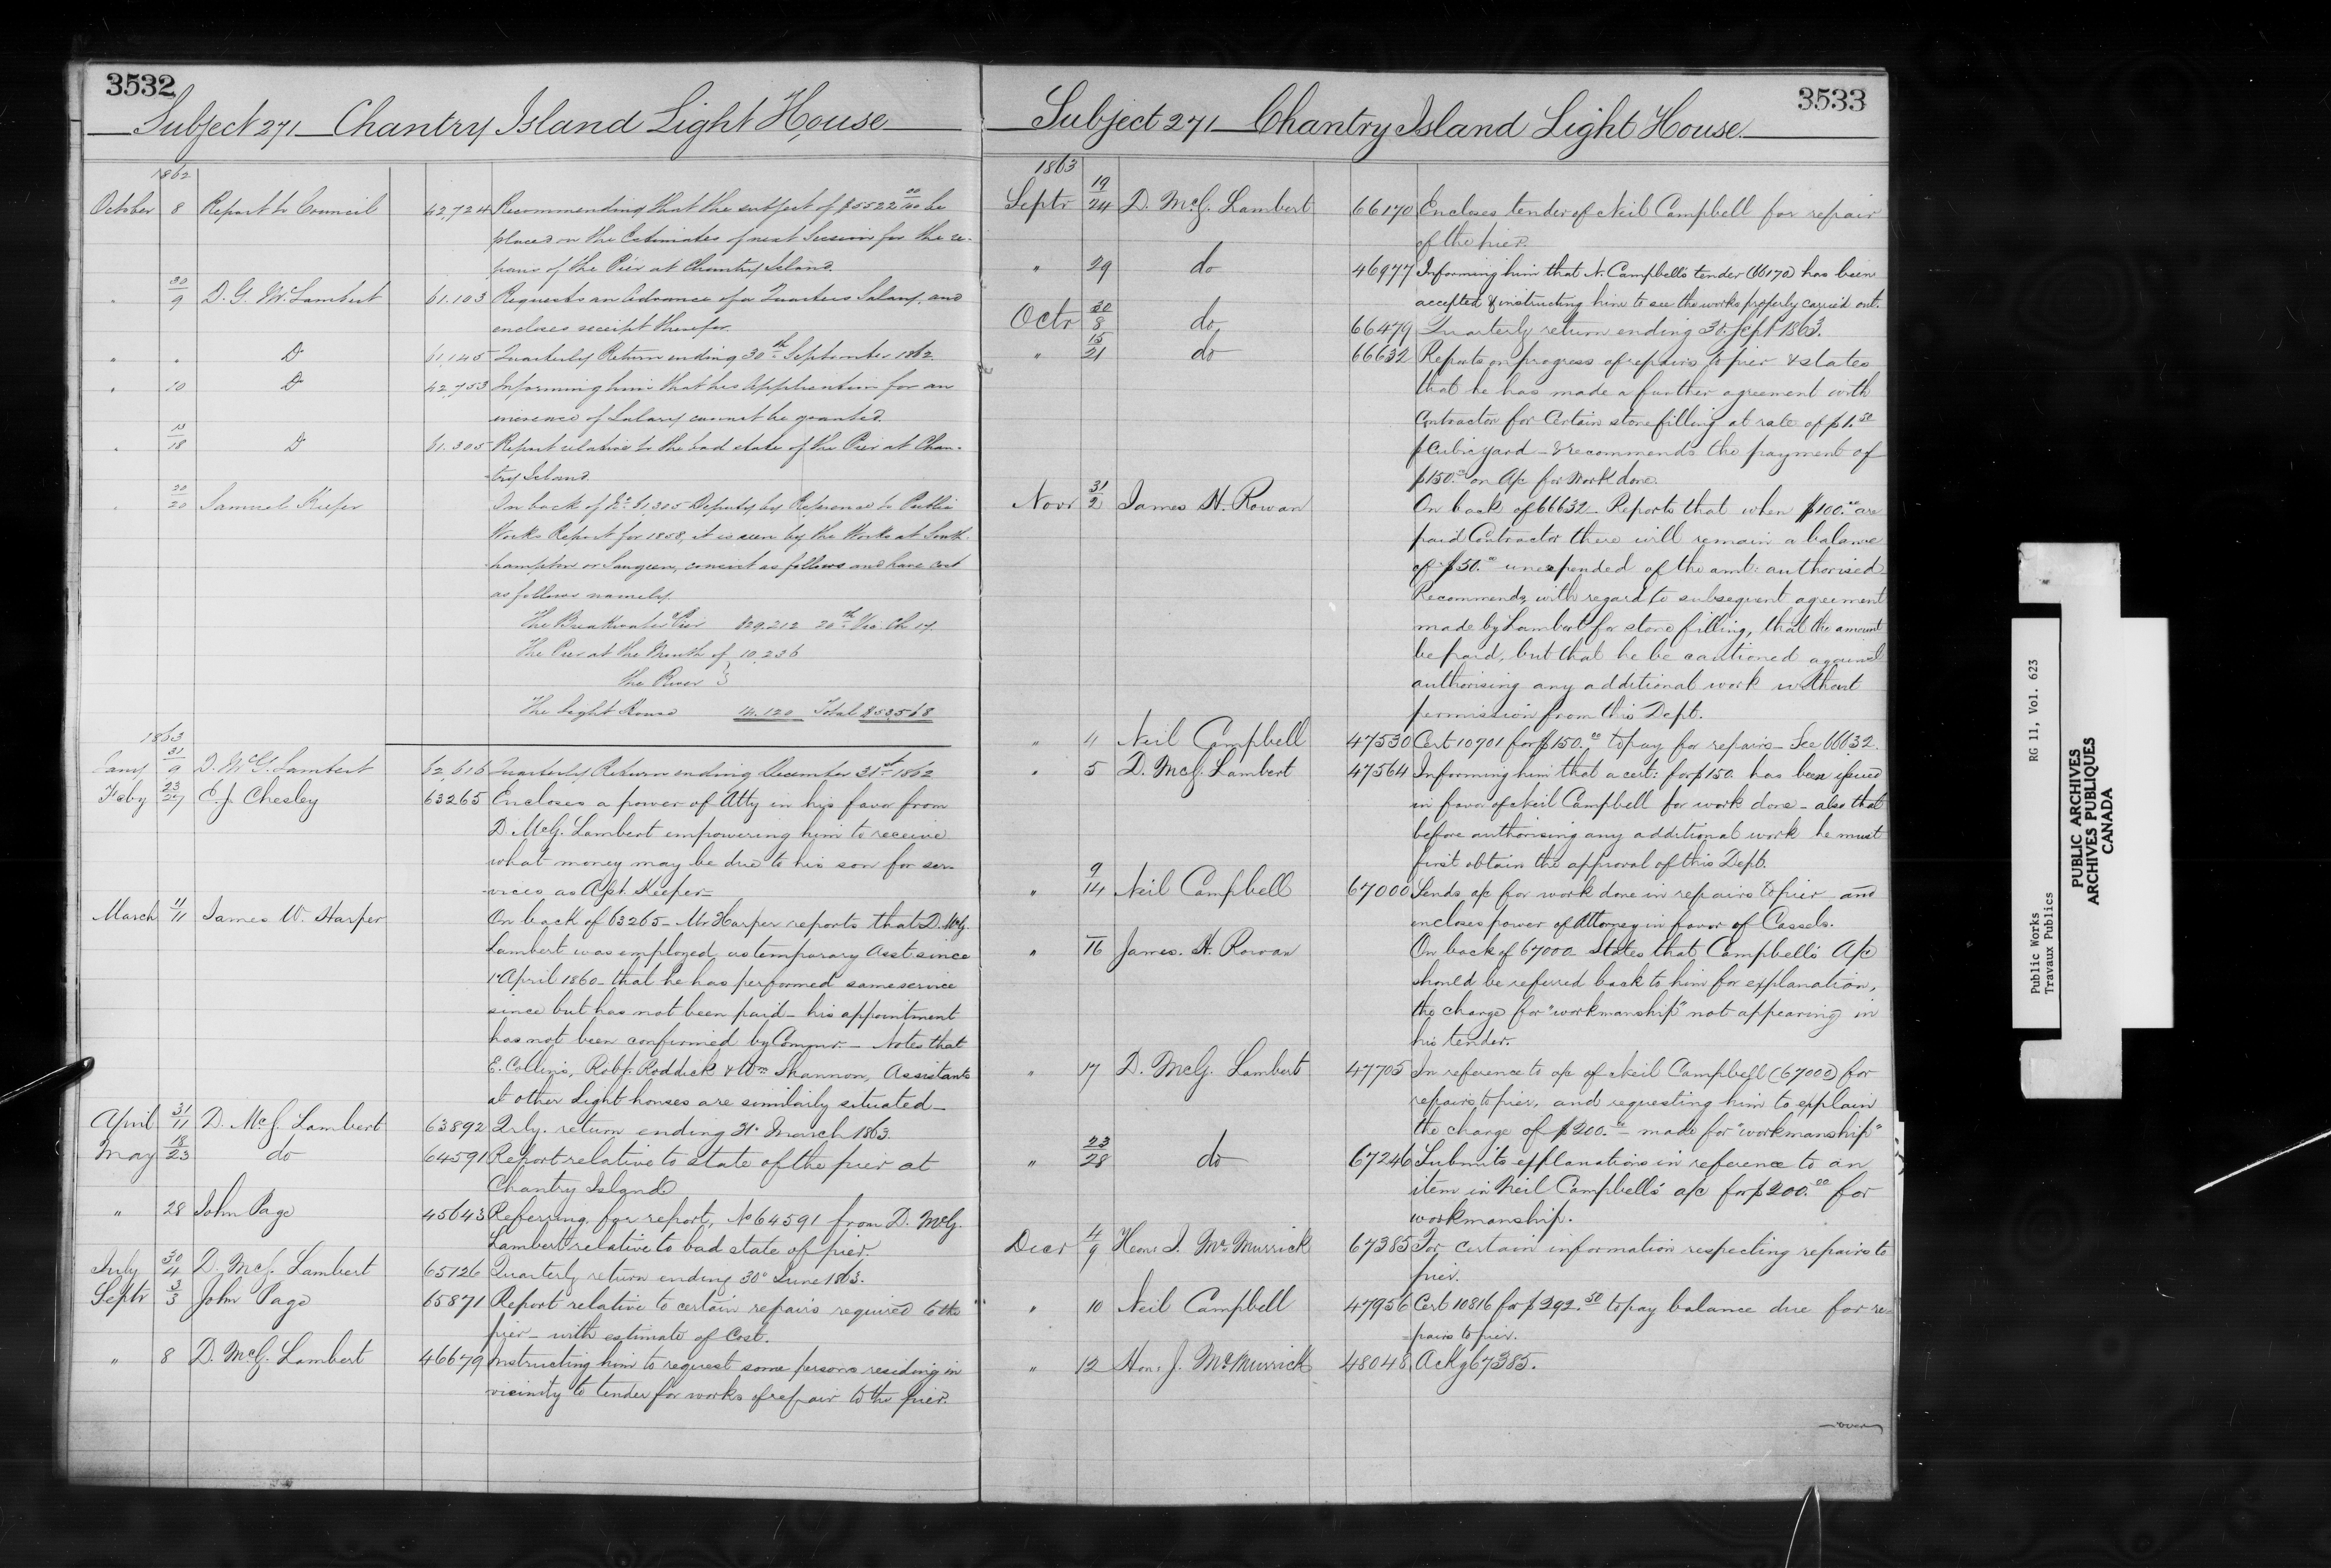 3532
Subject 271 Chantry Island Light House
1862
October 8 Report to Council 42,724 Recommending that the subject of $5522 00/100 be
placed on the Estimates of next Session for the re-
pairs of the Pier at Chantry Island.
" 30/9 D. G. McLambert 61.103 Requests an Advance of a Quarters Salary, and
encloses receipt therefor.
" " Do 61,145 Quarterly Return ending 30th September 1862
" 10 Do 42,753 Informing him that his application for an
increase of Salary cannot be granted.
" 13/18 Do 61.305 Report relative to the bad state of the Pier at Chan-
-try Island.
" 20/20 Samuel Keefer On back of No 61,305 Deputy by Reference to Public
Works Report for 1858, it is seen by the Works at South-
hampton or Saugeen, consist as follows and have cost
as follows namely
The Breakwater Pier $29,212 20th Vic: Ch 17.
The Pier at the Mouth of 10,236
the River }
The Light House 14.120 Total $53568
1863
Jany 31/9 D. McG. Lambert 62,616 Quarterly Return ending December 31st 1862
Feby 23/27 E. J. Chesley 63265 Encloses a power of Atty in his favor from
D. McG. Lambert empowering him to receive
what money may be due to his son for ser-
-vices as Asst. Keeper—
March 11/11 James W. Harper On back of 63265— Mr Harper reports that D. McG.
Lambert was employed as temporary Asst. since
1 April 1860— that he has performed same service
since but has not been paid— his appointment
has not been confirmed by Commr.— Notes that
E. Collins, Robt. Roddick & Wm Shannon, Assistants
at other Light houses are similarly situated—
April 31/11 D. McG. Lambert 63892 Qrly. return ending 31 March 1863.
May 18/23 do 64591 Report relative to state of the pier at
Chantry Island
" 28 John Page 45643 Referring for report, No 64591 from D. McG.
Lambert relative to bad state of pier.
July 30/4 D. McG. Lambert 65126 Quarterly return ending 30 June 1863.
Septr 3/3 John Page 65871 Report relative to certain repairs required to the
pier— with estimate of Cost.
" 8 D. McG. Lambert 46679 Instructing him to request some persons residing in
vicinity to tender for works of repair to the pier.
3533
Subject 271 Chantry Island Light House.
1863
Septr 19/24 D. McG. Lambert 66170 Encloses tender of Neil Campbell for repair
of the pier.
" 29 do 46977 Informing him that N. Campbell's tender (66170) has been
accepted & instructing him to see the works properly carried out.
Octr 30/8 do 66479 Quarterly return ending 30. Sept 1863.
" 15/21 do 66632 Reports on progress of repairs to pier & states
that he has made a further agreement with
Contractor for Certain stone filling at rate of $1.50
p Cubic yard— & recommends the payment of
$150.00 on A/c for Work done.
Novr 31/2 James H. Rowan On back of 66632— Reports that when $100.00 are
paid Contractor there will remain a balance
of $50.00 unexpended of the amt: authorised
Recommends with regard to subsequent agreement
made by Lambert for stone filling, that the amount
be paid, but that he be cautioned against
authorising any additional work without
permission from this Dept.
" 4 Neil Campbell 47530 Cert 10701 for $150.00 to pay for repairs— See 66632.
" 5 D. McG. Lambert 47564 Informing him that a cert: for $150. has been issued
in favor of Neil Campbell for work done— also that
before authorising any additional work he must
first obtain the approval of this Dept.
" 9/14 Neil Campbell 67000 Sends a/c for work done in repairs to pier and
encloses power of Attorney in favor of Cassels.
" 16 James. H. Rowan On back of 67000 States that Campbell's A/c
should be referred back to him for explanation,
the charge for "workmanship" not appearing in
his tender.
" 17 D. McG. Lambert 47705 In reference to a/c of Neil Campbell (67000) for
repairs to pier, and requesting him to explain
the charge of $200.00— made for "workmanship"
" 23/28 do 67246 Submits explanations in reference to an
item in Neil Campbell's a/c for $200.00 for
workmanship.
Decr 4/9 Hon: J. McMurrick 67385 For certain information respecting repairs to
pier.
" 10 Neil Campbell 47956 Cert 10816 for $292.50 to pay balance due for re-
-pairs to pier.
" 12 Hon: J. McMurrick 48048 Ackg 67385.
over
Public Works RG 11, Vol. 623
Travaux Publics
PUBLIC ARCHIVES
ARCHIVES PUBLIQUES
CANADA